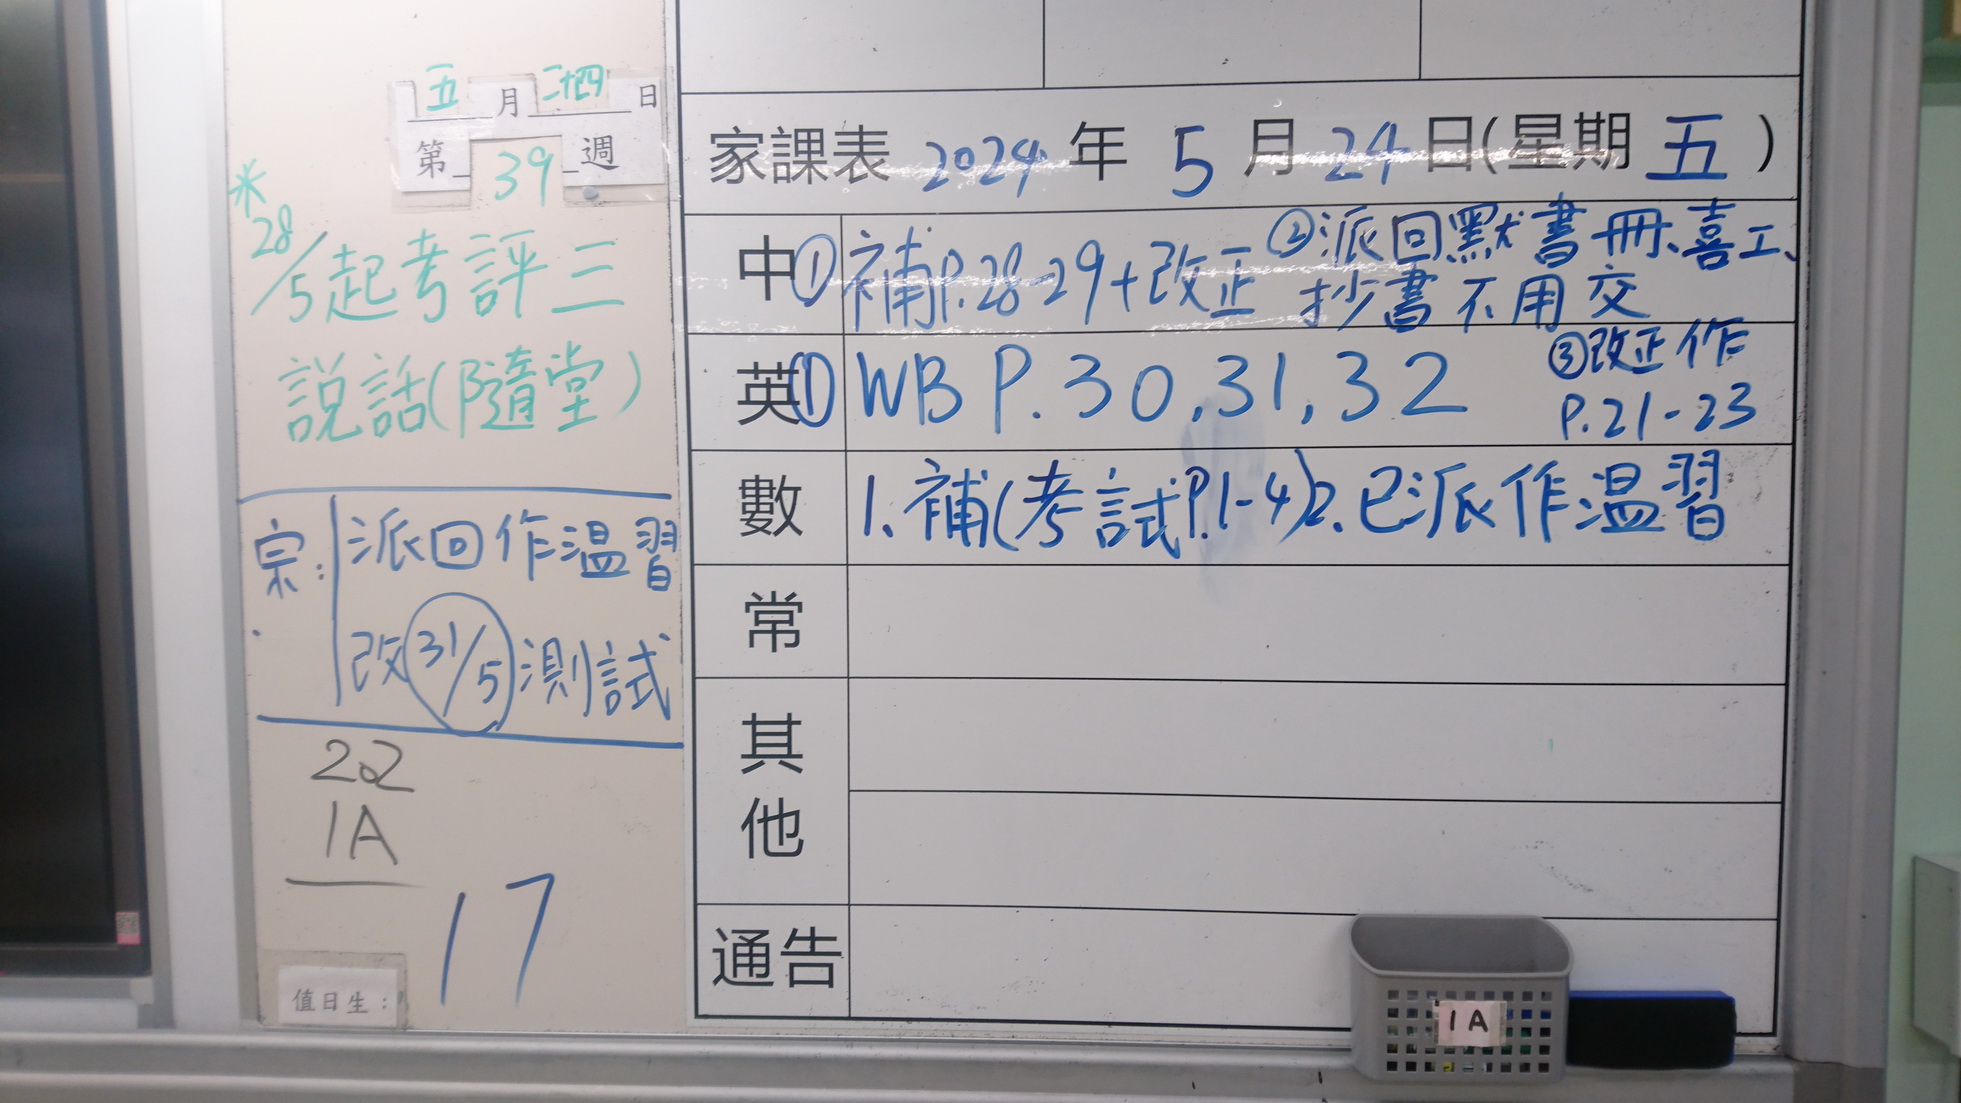 五月二十四日
第39週
*28/5起考評三
說話(隨堂)
宗: 派回作温習
改31/5測試
22
1A
17
值日生:
家課表 2024年5月24日(星期五)
中 ①補P.28-29+改正 ②派回默書冊、喜工、
抄書不用交
英 ①WB P.30,31,32 ③改正作
P.21-23
數 1.補(考試P.1-4)2.已派作温習
常
其他
通告
1A